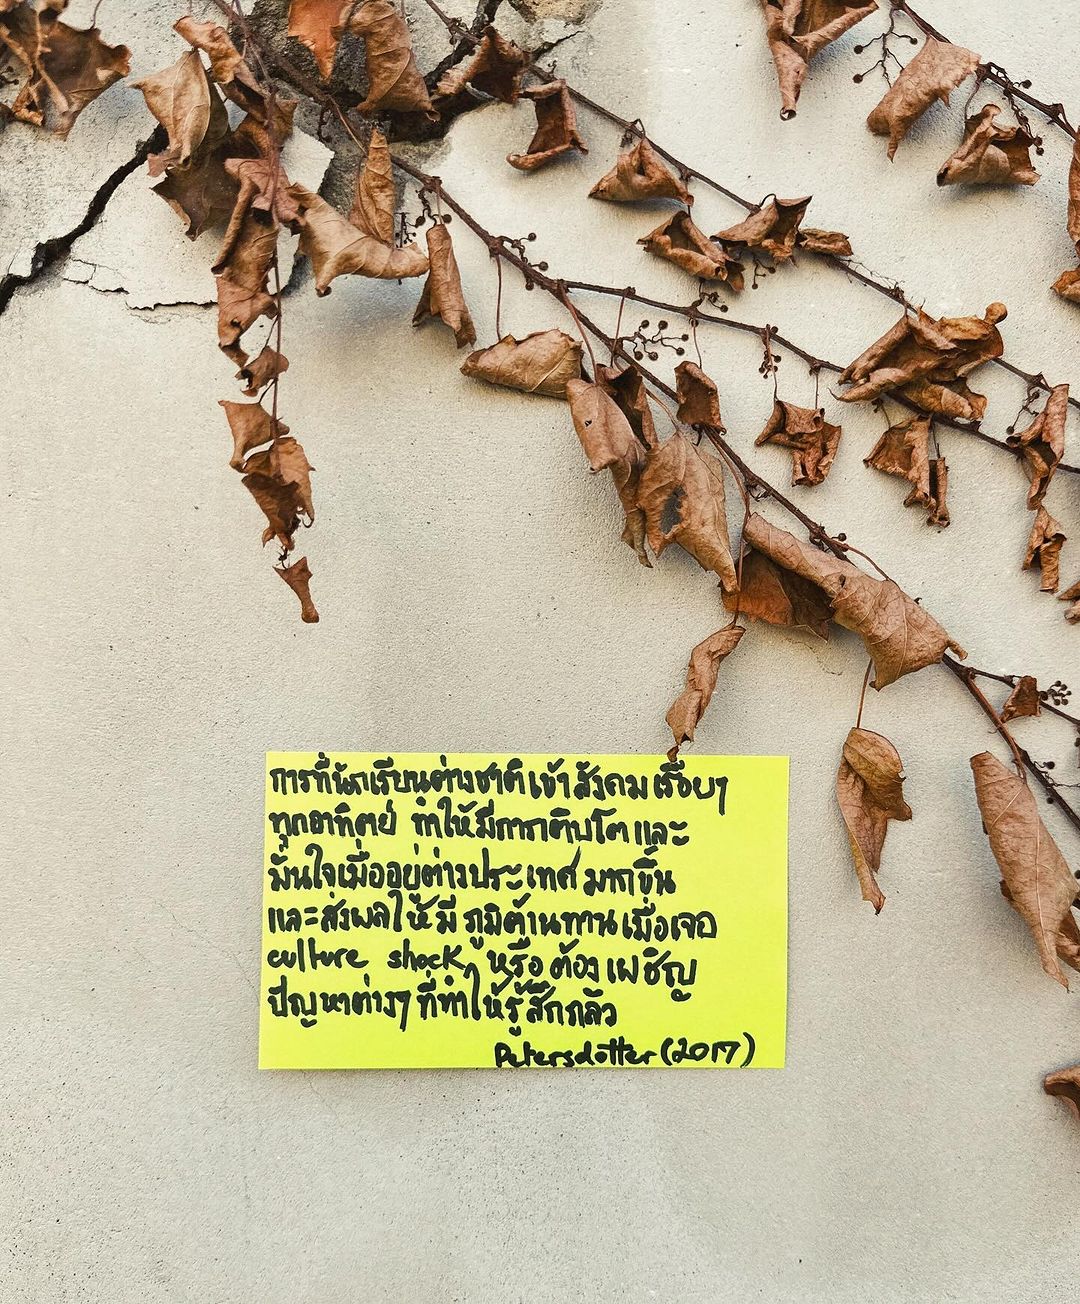 การที่นักเรียนต่างชาติเข้าสังคมเรื่อยๆ
ทุกอาทิตย์ ทำให้มีการเติบโตและ
มั่นใจเมื่ออยู่ต่างประเทศมากขึ้น
และส่งผลให้มีภูมิต้านทานเมื่อเจอ
culture shock หรือต้องเผชิญ
ปัญหาต่างๆที่ทำให้รู้สึกกลัว
Petersdotter (2017)